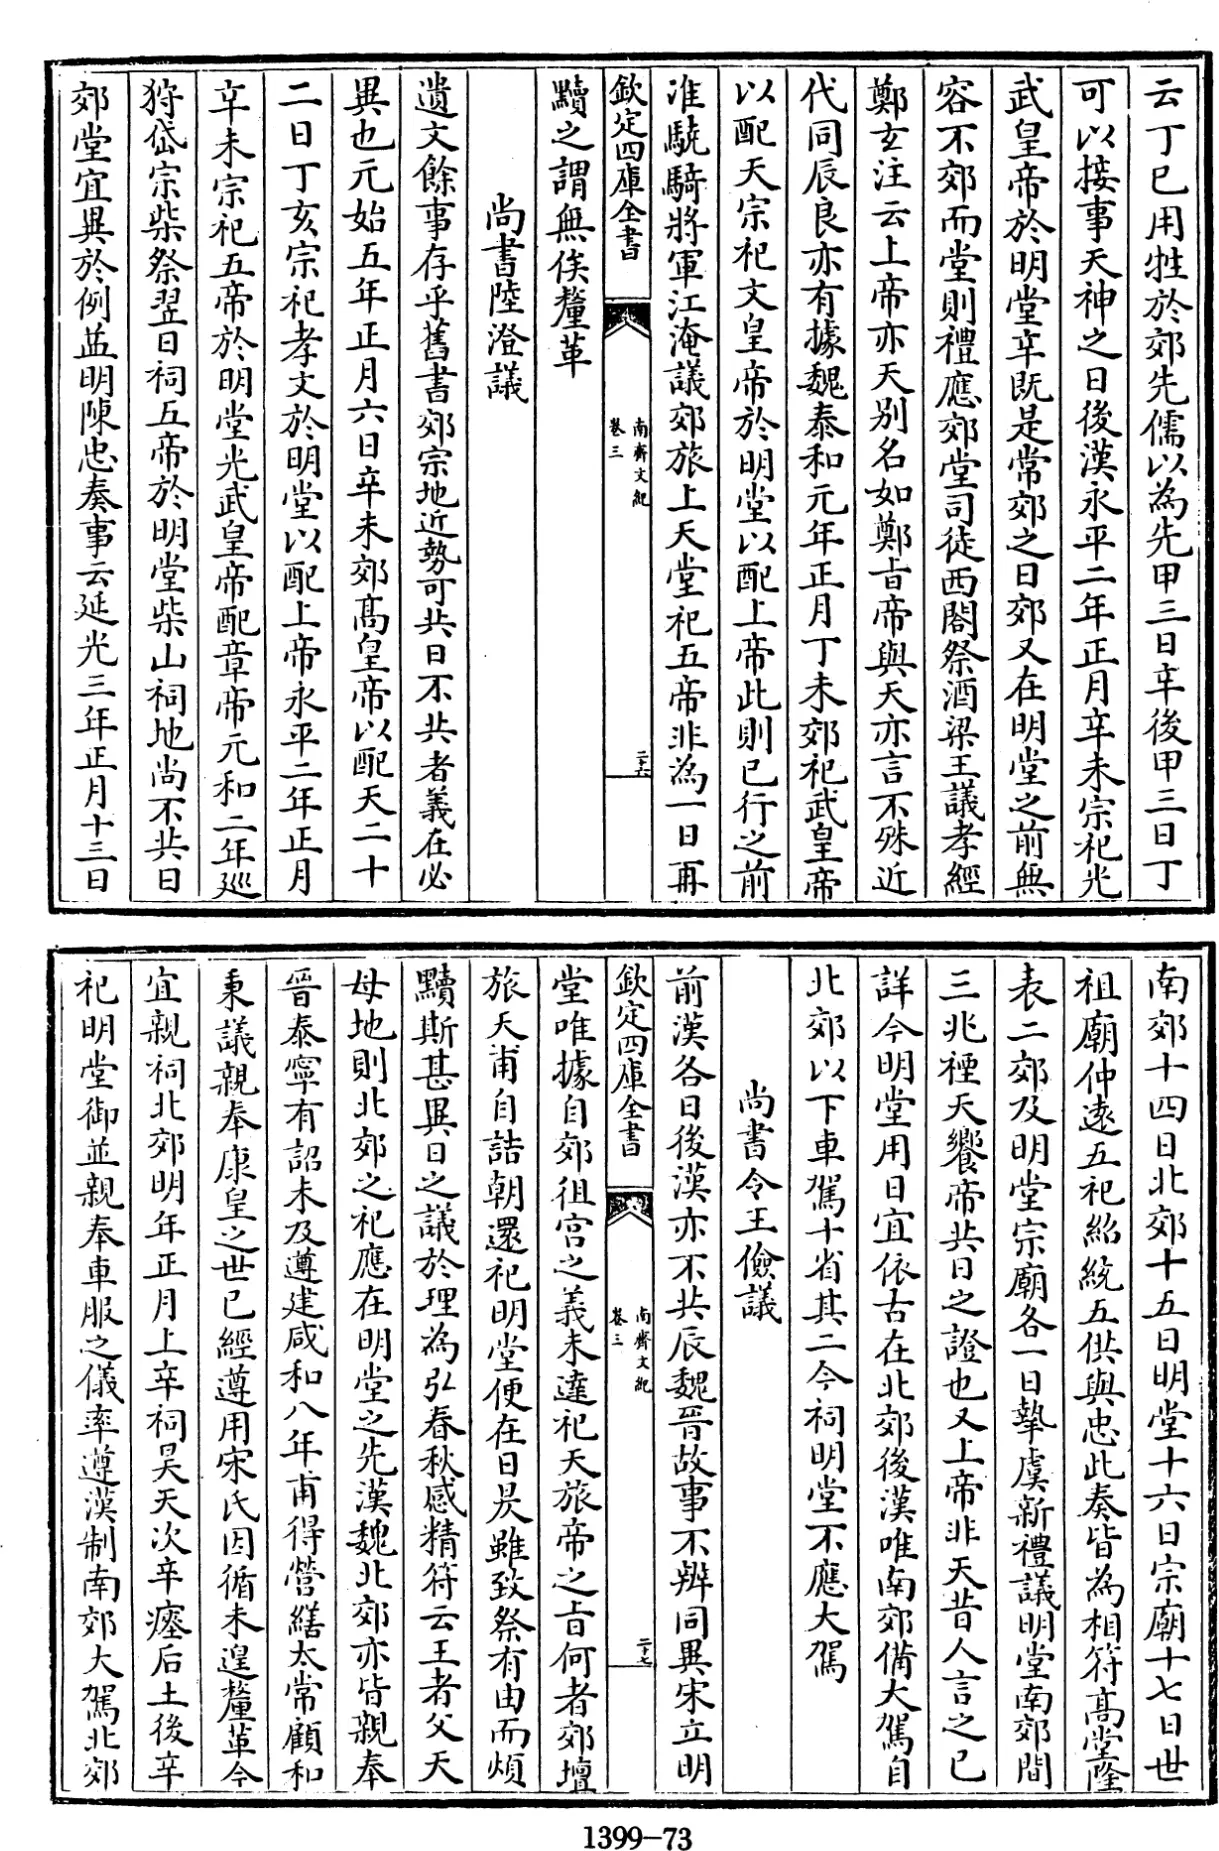 云丁巳用牲於郊先儒以為先甲三日辛後甲三日丁
可以接事天神之日後漢永平二年正月辛未宗祀光
武皇帝於明堂辛既是常郊之日郊又在明堂之前無
容不郊而堂則禮應郊堂司徒西閤祭酒梁王議孝經
鄭玄注云上帝亦天別名如鄭㫖帝與天亦言不殊近
代同辰良亦有據魏泰和元年正月丁未郊祀武皇帝
以配天宗祀文皇帝於明堂以配上帝此則已行之前
准驍騎將軍江淹議郊旅上天堂祀五帝非為一日再
欽定四庫全書
南齊文紀
卷三
二十六
黷之謂無俟釐革
尚書陸澄議
遺文餘事存乎舊書郊宗地近勢可共日不共者義在必
異也元始五年正月六日辛未郊髙皇帝以配天二十
二日丁亥宗祀孝文於明堂以配上帝永平二年正月
辛未宗祀五帝於明堂光武皇帝配章帝元和二年巡
狩岱宗柴祭翌日祠五帝於明堂柴山祠地尚不共日
郊堂宜異於例益明陳忠奏事云延光三年正月十三日
南郊十四日北郊十五日明堂十六日宗廟十七日世
祖廟仲逺五祀紹統五供與忠此奏皆為相符髙堂隆
表二郊及明堂宗廟各一日摯虞新禮議明堂南郊間
三兆禋天饗帝共日之證也又上帝非天昔人言之已
詳今明堂用日宜依古在北郊後漢唯南郊備大駕自
北郊以下車駕十省其二今祠明堂不應大駕
尚書令王儉議
前漢各日後漢亦不共辰魏晉故事不辨同異宋立明
欽定四庫全書
南齊文紀
卷三
二十七
堂唯據自郊徂宮之義未達祀天旅帝之㫖何者郊壇
旅天甫自詰朝還祀明堂便在日昃雖致祭有由而煩
黷斯甚異日之議於理為弘春秋感精符云王者父天
母地則北郊之祀應在明堂之先漢魏北郊亦皆親奉
晉泰寧有詔未及遵建咸和八年甫得營繕太常顧和
秉議親奉康皇之世已經遵用宋氏因循未遑釐革今
宜親祠北郊明年正月上辛祠昊天次辛瘞后土後辛
祀明堂御並親奉車服之儀率遵漢制南郊大駕北郊
1399-73